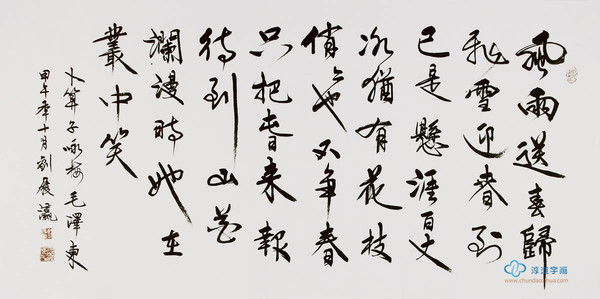 風雨送春歸
飛雪迎春到
已是懸涯百丈
冰猶有花枝
俏〻也不争春
只把春來報
待到山花
瀾漫時她在
叢中笑
卜算子咏梅 毛澤東
甲午年十月刘瀛
淳道字画
www.chundaozihua.com